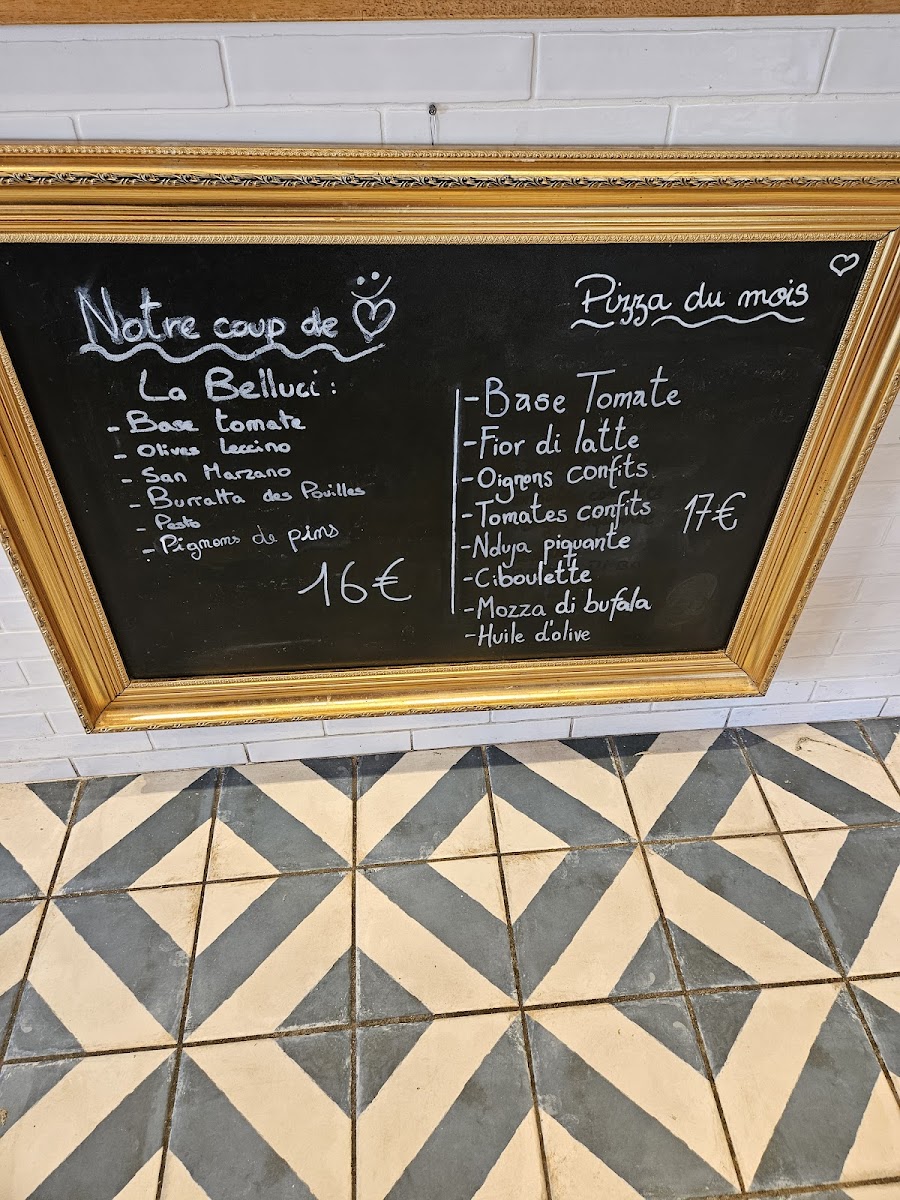 Notre coup de
La Belluci :
- Base tomate
- Olives Leccino
- San Marzano
- Burratta des Pouilles
- Pesto
- Pignons de pins
16€
Pizza du mois
- Base Tomate
- Fior di latte
- Oignons confits
- Tomates confits
17€
- Nduja piquante
- Ciboulette
- Mozza di bufala
- Huile d'olive